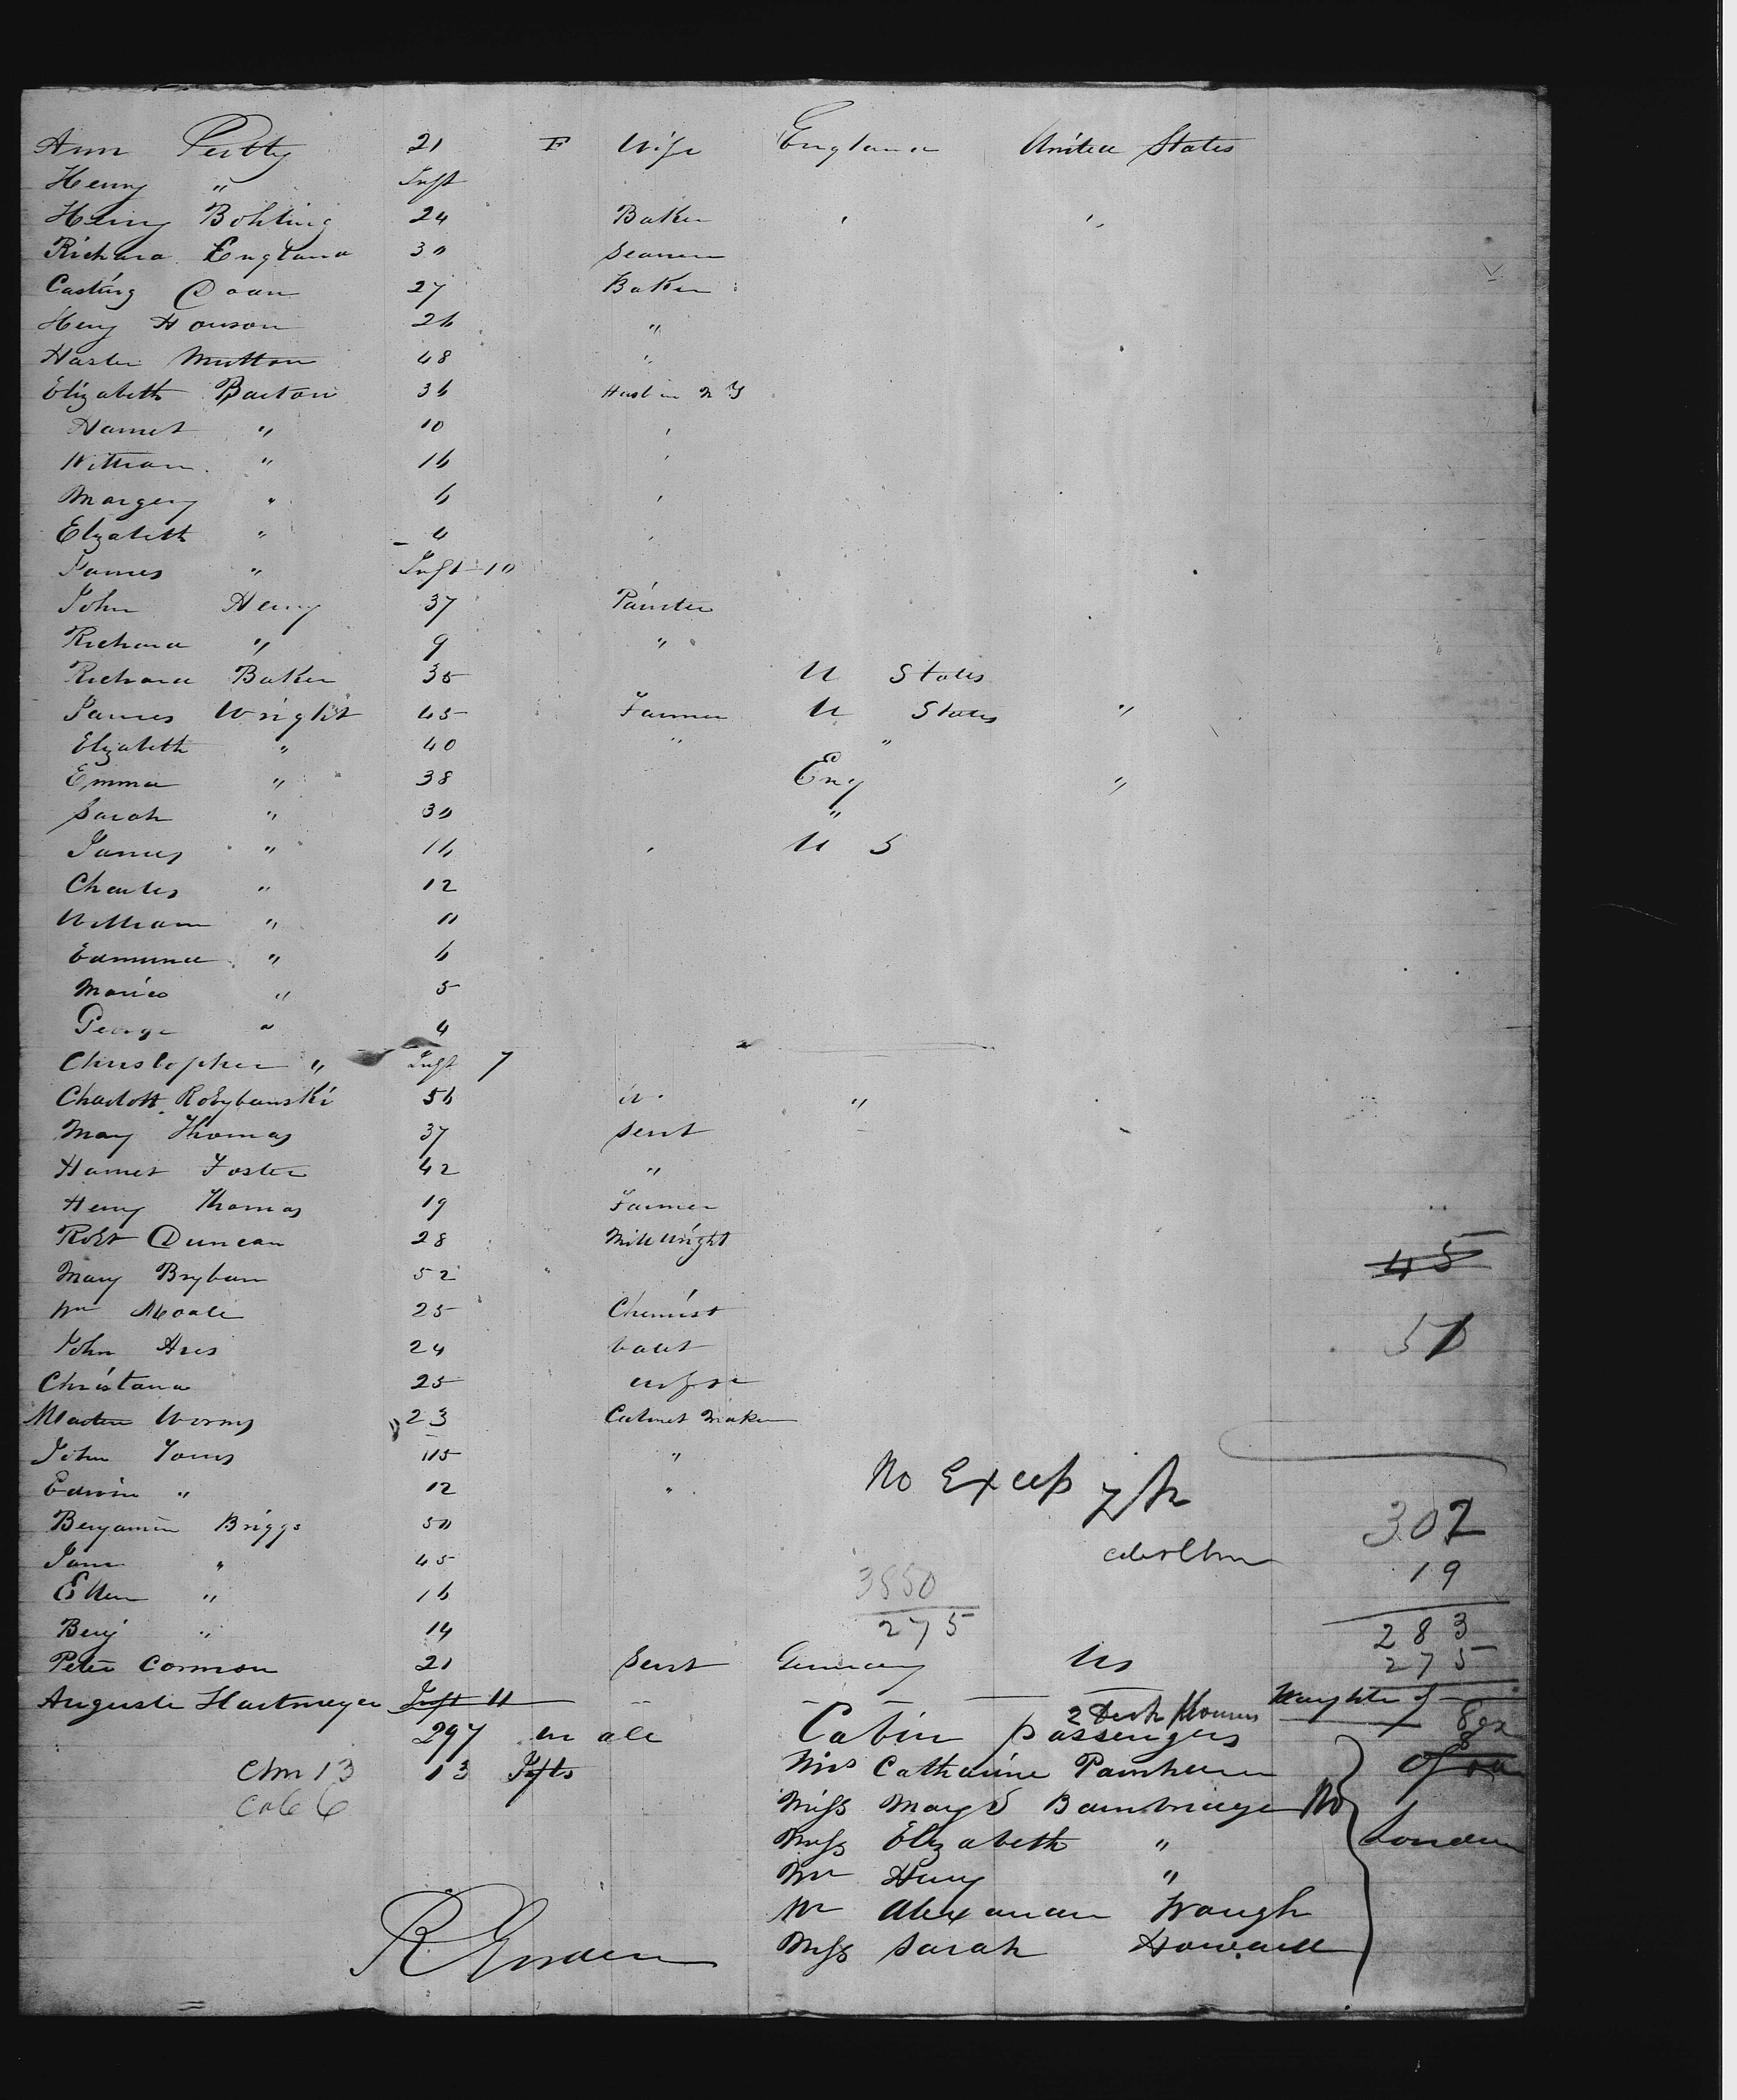 Ann Petty 21 F Wife England United States
Henry " Inft
Henry Bohling 24 Baker ' "
Richard England 30 Seaman
Casting Doan 27 Baker
Heny Hanson 26 "
Mutton 48 "
Elizabeth Barton 36 Husb in N Y
Harriet " 10 '
William " 16 '
Margery " 6 '
Elizabeth " 4 '
James " Inft 10
John Henry 37 Painter
Richard " 9 "
Richard Baker 35 U States
James Wright 45 Farmer U States "
Elizabeth " 40 " "
Emma " 38 Eng "
Sarah " 30 "
James " 16 ' U S
Charles " 12
William " 11
Edmund " 6
Maria 5
George " 4
Christopher " Inft 7
Charlott 56 "
Mary Thomas 37 Servt
Harriet Foster 42 "
Henry Thomas 19 Farmer
Robt Duncan 28 Mill Wright
45
Mary Bryban 52
Wm Moale 25 Chemist
51
John Ares 24
Christana 25 wife
Worms 23 Cabinet Maker
John 45 "
Edwin " 12 "
No Excep
Benjamin Briggs 50
302
Jane " 45
19
Ellen " 16
3850
Benj " 14
275
283
Peter Cormon 21 Servt Germany US
275
Auguste Hartmeyer Inft 11 Daughter of
297 in all Cabin passengers
13 Infts Mrs Catharine
Miss Mary S Bambridge
Miss Elizabeth " London
Mr Henry "
Mr Alexander Waugh
Miss Sarah Howard